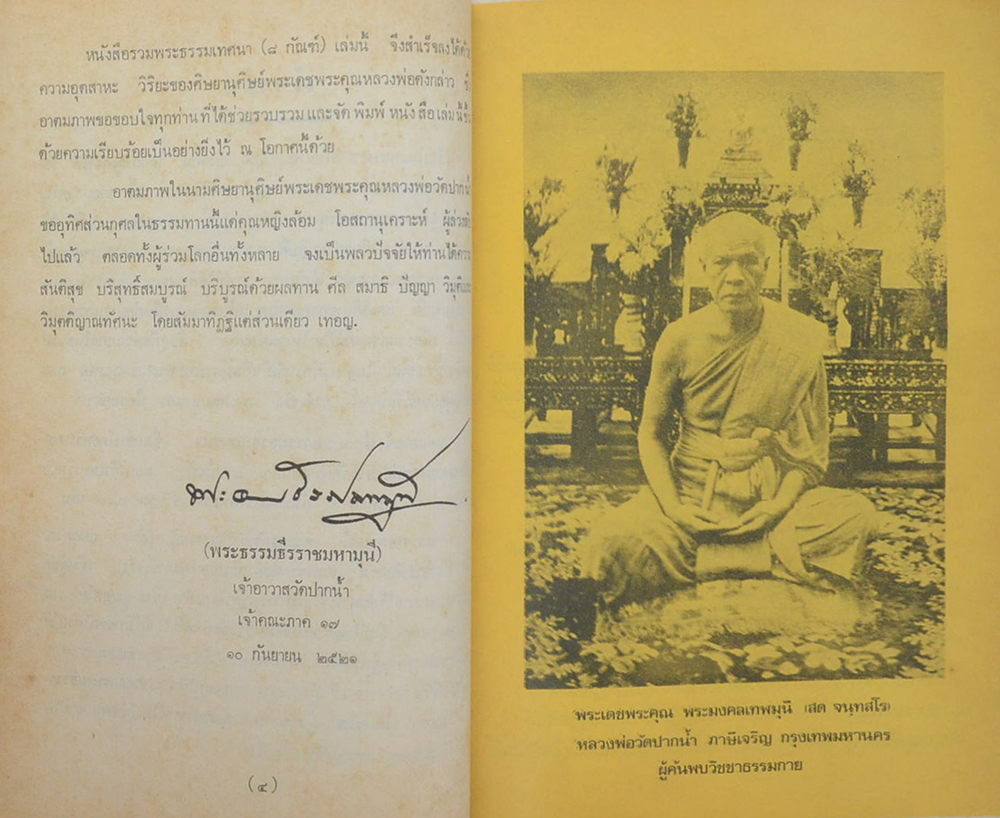 หนังสือรวมพระธรรมเทศนา (๘ กัณฑ์) เล่มนี้ จึงสำเร็จลงได้ด้วย
ความอุตสาหะ วิริยะของศิษยานุศิษย์พระเดชพระคุณหลวงพ่อดังกล่าว
อาตมภาพขอขอบใจทุกท่านที่ได้ช่วยรวบรวม และจัดพิมพ์หนังสือเล่มนี้
ด้วยความเรียบร้อยเป็นอย่างยิ่งไว้ ณ โอกาสนี้ด้วย
อาตมภาพในนามศิษยานุศิษย์พระเดชพระคุณหลวงพ่อวัดปากน้ำ
ขออุทิศส่วนกุศลในธรรมทานนี้แด่คุณหญิงล้อม โอสถานุเคราะห์
ไปแล้ว ตลอดทั้งผู้ร่วมโลกอื่นทั้งหลาย จงเป็นพลวปัจจัยให้ท่านได้
สันติสุข บริสุทธิ์สมบูรณ์ บริบูรณ์ด้วยผลทาน ศีล สมาธิ ปัญญา
วิมุตติญาณทัศนะ โดยสัมมาทิฏฐิแต่ส่วนเดียว เทอญ.
(พระธรรมธีรราชมหามุนี)
เจ้าอาวาสวัดปากน้ำ
เจ้าคณะภาค ๑๗
๑๐ กันยายน ๒๕๒๑
(๔)
พระเดชพระคุณ พระมงคลเทพมุนี (สด จนฺทสโร)
หลวงพ่อวัดปากน้ำ ภาษีเจริญ กรุงเทพมหานคร
ผู้ค้นพบวิชชาธรรมกาย